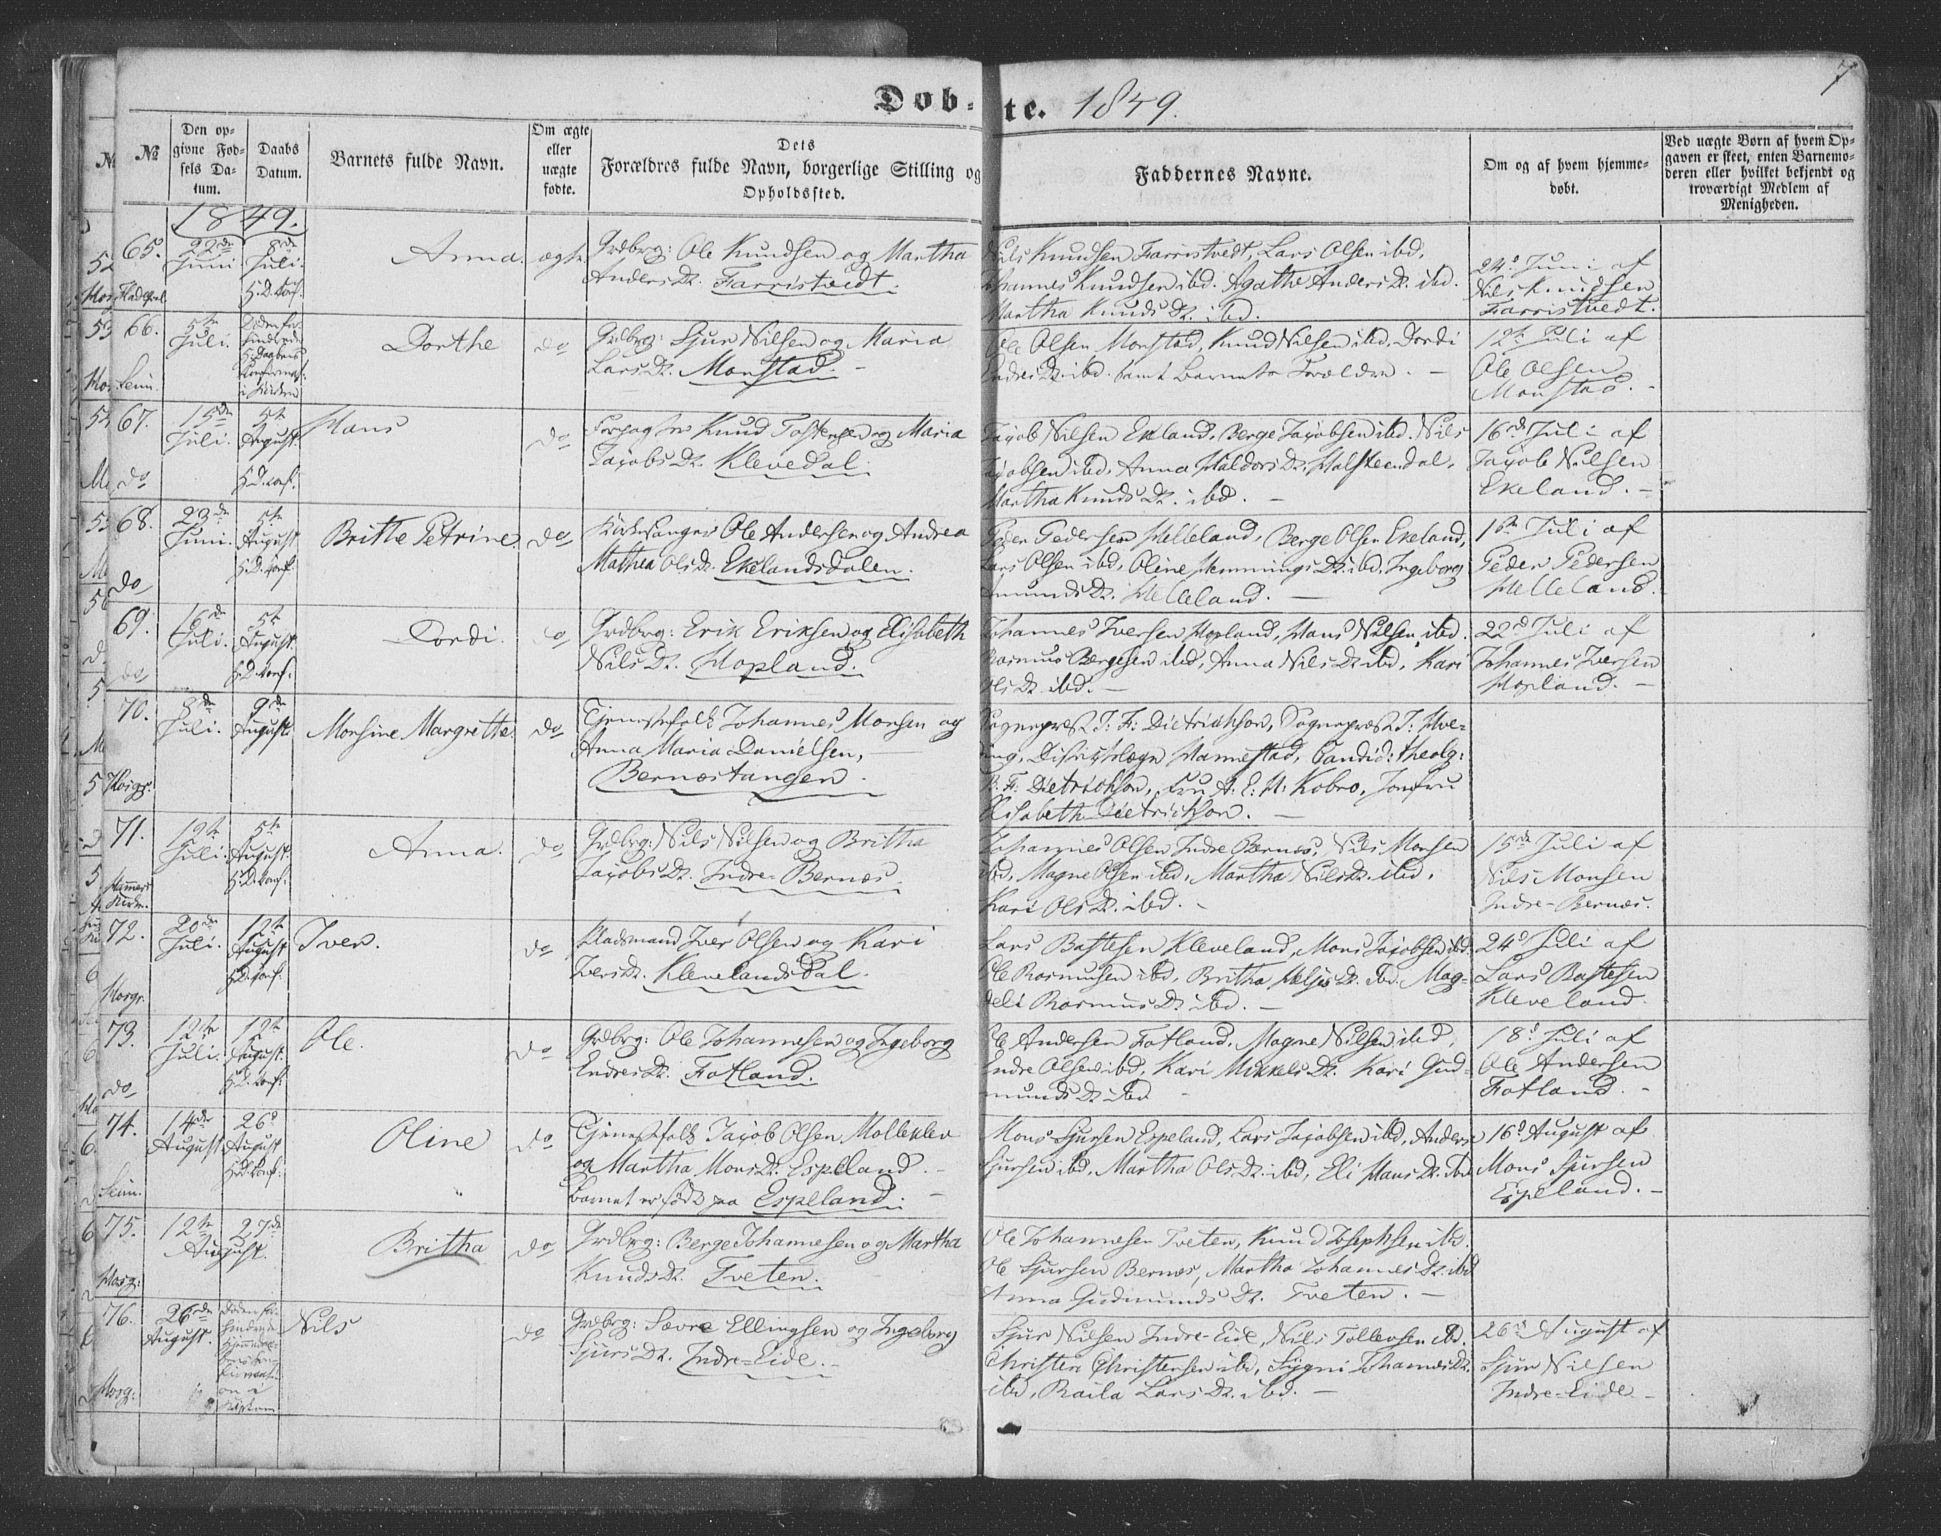 Døb=
te. 1849.
7
№
Den op=
givne Fød=
sels Da=
tum.
Daabs
Datum.
Barnets fulde Navn.
Om ægte
eller
uægte
fødte.
Dets
Forældres fulde Navn, borgerlige Stilling og
Opholdssted.
Faddernes Navne.
Om og af hvem hjemme=
døbt.
Ved uægte Børn af hvem Op=
gaven er skeet, enten Barnemo=
deren eller hvilket bekjendt og
troværdigt Medlem af
Menigheden.
1849.
65.
22de
Juni
8de
Juli.
H.D. Conf.
Anna.
ægte
Grdbrg: Ole Knudsen og Martha
Anders Dr. Farristvedt.
Nils Knudsen Farristvedt, Lars Olsen ibd.
Johannes Knudsen ibd. Agathe Anders Dr. ibd.
Martha Knuds Dr. ibd.
24d Juni af
Nils Knudsen
Farristvedt.
66.
5te
Juli.
Seim.
Dorthe
do
Grdbrg: Sjur Nilsen og Maria
Lars Dr. Monstad.
Ole Olsen Monstad, Knud Nilsen ibd. Dordi
Endres Dr. ibd. samt Barnets Forældre.
12te Juli af
Ole Olsen
Monstad.
67.
15de
Juli.
5te
August.
H.D. Conf.
do
Hans
do
Knud Tostensen og Maria
Jacobs Dr. Klevedal.
Jacob Nilsen Ekeland, Berge Jacobsen ibd. Nils
Jacobsen ibd, Anna Haldors Dr. Halsteendal,
Martha Knuds Dr. ibd.
16de Juli af
Jacob Nilsen
Ekeland.
68.
23de
Juni.
5te
August
H.D. Conf.
do
Britte Petrine.
do
Kirkesanger Ole Andersen og Andrea
Mathea Ols Dr. Ekelandsdalen.
Peder Pedersen Helleland, Berge Olsen Ekeland,
Lars Olsen ibd, Oline Hemmings Dr. ibd, Ingeborg
Amunds Dr. Helleland.
16de Juli af
Peder Pedersen
Helleland.
69.
16de
Juli.
5te
August.
H.D. Conf.
do
Dordi.
do
Grdbrg: Erik Eriksen og Elisabeth
Nils Dr. Hopland.
Johannes Iversen Hopland, Hans Nilsen ibd.
Rasmus Bergesen ibd, Anna Nils Dr. ibd, Kari
Ols Dr. ibd.
22d Juli af
Johannes Iversen
Hopland.
70.
8de
Juli.
9de
August
Monsine Margrethe.
do
Tjenestefolk Johannes Monsen og
Anna Maria Danielsen,
Bernæstangen.
Sognepræst J. F: Dietrichson, Sognepræst J: Hve=
ding, Districtslæge Hannestad, Candid: theolg:
F: Dietrichson, Fru A. E. H. Kobro, Jomfru
Elisabeth Dietrichson.
71.
19te
Juli.
5te
August.
H.D. Conf.
Anna.
do
Grdbrg: Nils Nilsen og Britha
Jacobs Dr. Indre-Bernæs.
Johannes Olsen Indre Bernæs, Nils Monsen
ibd, Magne Olsen ibd, Martha Nils Dr. ibd,
Kari Ols Dr. ibd.
15de Juli af
Nils Monsen
Indre-Bernæs.
72.
20de
Juli.
12te
August
H.D. Conf.
Iver.
do
Pladsmand Iver Olsen og Kari
Ivers Dr. Klevelandsdal.
Lars Bastesen Kleveland, Mons Jacobsen ibd
Ole Rasmusen ibd, Britha Helges Dr. ibd. Mag=
deli Rasmus Dr. ibd.
24d Juli af
Lars Bastesen
Kleveland.
73.
12te
Juli.
12te
August.
H.D. Conf.
do
Ole.
do
Grdbrg: Ole Johannesen og Ingeborg
Endres Dr. Fotland.
Ole Andersen Fotland, Magne Nilsen ibd,
Endre Olsen ibd, Kari Mikkels Dr. Kari Gud=
munds Dr. ibd
18d Juli af
Ole Andersen
Fotland.
74.
14de
August
26d
August
H.D. Conf.
Seim.
Oline
do
Tjenestefolk Jacob Olsen Molleklev
og Martha Mons Dr. Espeland.
barnet er født paa Espeland.
Mons Sjursen Espeland, Lars Jacobsen ibd, Anders
Sjursen ibd, Martha Ols Dr. ibd, Eli Hans Dr. ibd
16d August af
Mons Sjursen
Espeland.
75.
12te
27de
August.
Britha
do
Grdbrg: Berge Johannesen og Martha
Knuds Dr. Tveten.
Ole Johannesen Tveten, Knud Josephsen ibd.
Ole Sjursen Bernæs, Martha Johannes Dr. ibd
Anna Gudmunds Dr. Tveten.
76.
26de
August.
Nils
do
Grdbrg: Sævre Ellingsen og Ingeborg
Sjurs Dr. Indre-Eide.
Sjur Nilsen Indre-Eide, Nils Tollevsen ibd.
Christen Christensen ibd, Sygni Johannes Dr.
ibd, Raila Lars Dr. ibd.
26d August af
Sjur Nilsen
Indre-Eide